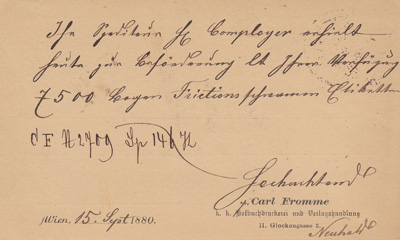 Ihr Spediteur H Comployer erhielt
heute zur Beförderung lt Ihrer Verfügung
7500 Bogen Frictions schwamm Etiketten
C F N 2709 Sp 146 K
Hochachtend
p. Carl Fromme
k. k. Hofbuchdruckerei und Verlagshandlung
II. Glockengasse 2.
Wien, 15. Sept 1880.